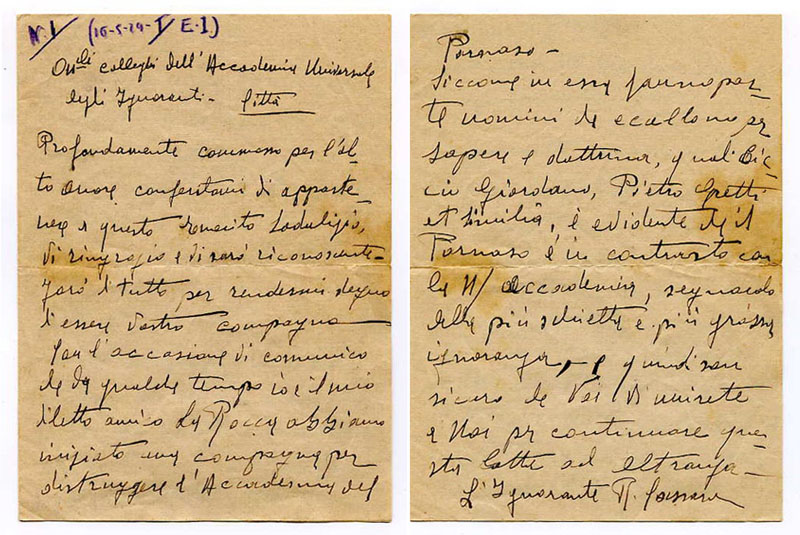 N. 1/ (16-5-29- I/ E.1)
On.li colleghi dell'Accademia Universale
degli Ignoranti - Città
Profondamente commosso per l'al-
to onore conferitomi di apparte-
nere a questo sodalizio,
Vi ringrazio e Vi sarò riconoscente -
Farò di tutto per rendermi degno
d'essere Vostro compagno -
Con l'occasione Vi comunico
che da qualche tempo io e il mio
diletto amico La Rocca abbiamo
iniziato una campagna per
distruggere l'Accademia del
Parnaso -
Siccome in essa fanno par-
te uomini che eccellono per
sapere e dottrina, quali Cic-
cio Giordano, Pietro
et similia, è evidente che il
Parnaso è in contrasto con
la N/ accademia, segnacolo
della più schietta e più grassa
ignoranza, - e quindi son
sicuro che Voi Vi unirete
a Noi per continuare que-
sta lotta ad oltranza -
L'Ignorante